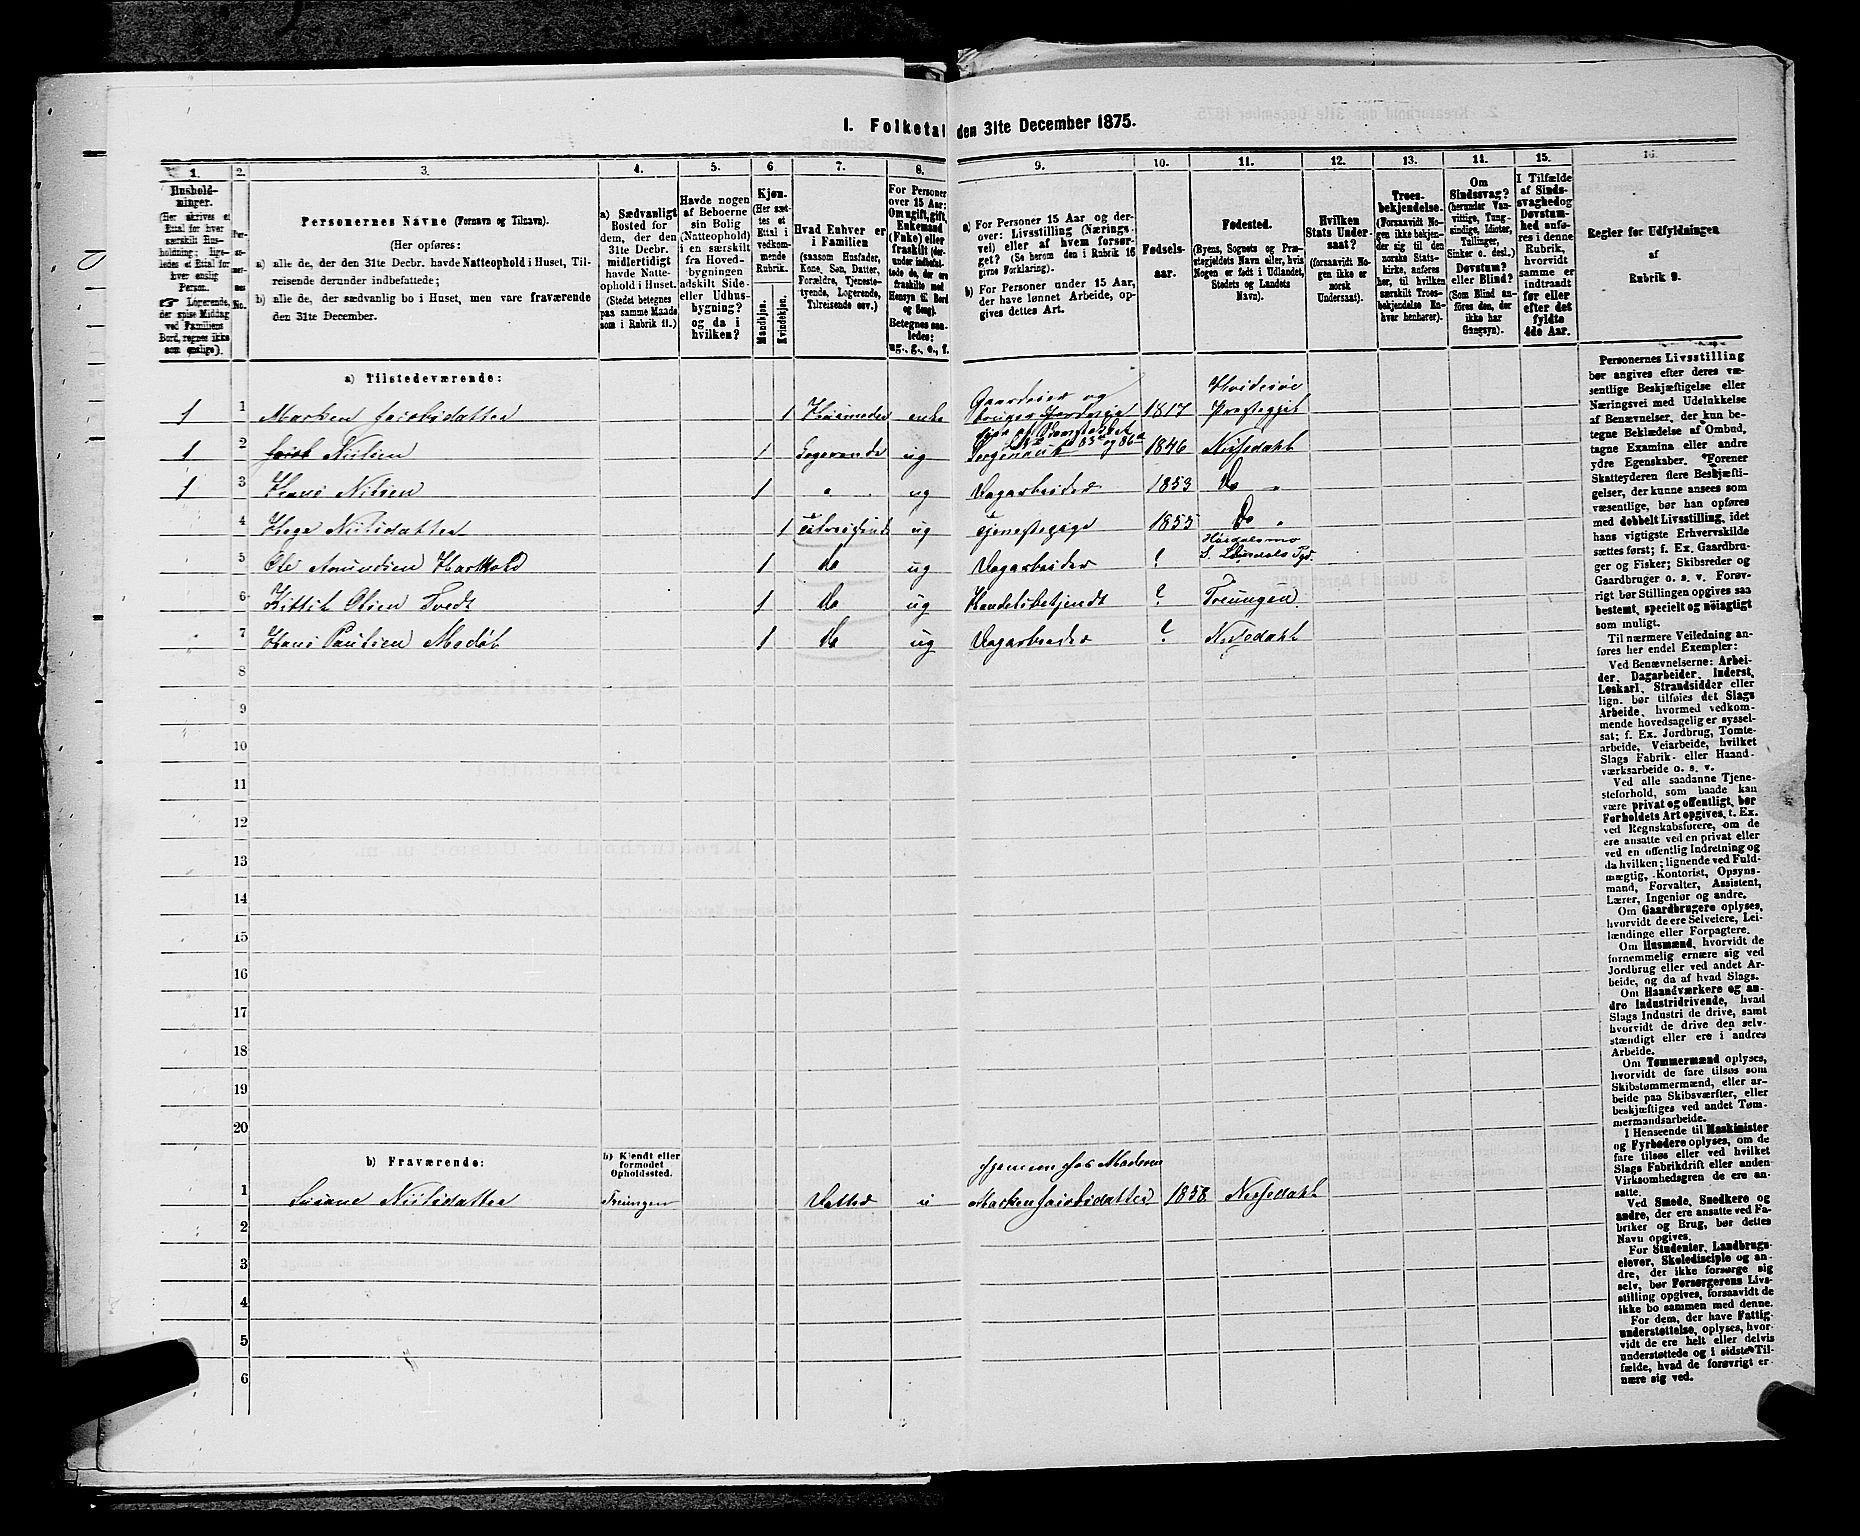 1. Folketal den 31te December 1875.
1. 2. 3. 4. 5. 6 7. 8. 9. 10. 11. 12. 13. 14. 15. 16
Hushold-
ninger.
(Her skrives et
Ettal for
hver særskilt Hus-
holdning; lige-
ledes et Ettal for
hver enslig
Person.
Logerende,
der spise Middag
ved Familiens
Bord, regnes ikke
som enslige).
Per-
soner-
nes
No.
Personernes Navne (Fornavn og Tilnavn).
(Her opføres:
a) alle de, der den 31te Decbr. havde Natteophold i Huset, Til-
reisende derunder indbefattede;
b) alle de, der sædvanlig bo i Huset, men vare fraværende
den 31te December.
a) Sædvanligt
Bosted for
dem, der den
31te Decbr.
midlertidigt
havde Natte-
ophold i Huset.
(Stedet betegnes
paa samme Maade
som i Rubrik 11.)
Havde nogen
af Beboerne
sin Bolig
(Natteophold)
i en særskilt
fra Hoved-
bygningen
adskilt Side-
eller Udhus-
bygning?
og da i
hvilken?
Kjøn.
(Her sæt-
tes et
Ettal i
vedkom-
mende
Rubrik.
Mandkjøn.
Kvindekjøn.
Hvad Enhver er
i Familien
(saasom Husfader,
Kone, Søn, Datter,
Forældre, Tjeneste-
tyende, Logerende,
Tilreisende osv.)
For Personer
over 15 Aar:
Om ugift, gift,
Enkemand
(Enke) eller
fraskilt (der-
under indbefat-
tede de, der ere
fraskilte med
Hensyn til Bord
og Seng).
Betegnes saa-
ledes:
ug., g., e., f.
a) For Personer 15 Aar og der-
over: Livsstilling (Nærings-
vei) eller af hvem forsør-
get? (Se herom den i Rubrik 16
givne Forklaring).
b) For Personer under 15 Aar,
der have lønnet Arbeide, op-
gives dettes Art.
Fødsels-
aar.
Fødested.
(Byens, Sognets og Præ-
stegjeldets Navn eller, hvis
Nogen er født i Udlandet,
Stedets og Landets
Navn).
Hvilken
Stats Under-
saat?
(forsaavidt No-
gen ikke er
norsk
Undersaat).
Troes-
bekjendelse.
(Forsaavidt No-
gen ikke bekjen-
der sig til den
norske Stats-
kirke, anføres
her, til hvilken
særskilt Troes-
bekjendelse En-
hver henhører).
Om
Sindssvag?
(herunder Van-
vittige, Tung-
sindige, Idioter,
Tullinger,
Sinker o. desl.)
Døvstum?
eller Blind?
(Som Blind an-
føres den, der
ikke har
Gangsyn).
I Tilfælde
af Sinds-
svaghed og
Døvstum-
hed anfø-
res i denne
Rubrik,
hvorvidt
samme er
indtraadt
før eller
efter det
fyldte
4de Aar.
Regler for Udfyldningen
af
Rubrik 9.
a) Tilstedeværende:
Gaardeier og Hvideseie
1 1 Marken Jacobsdatter 1 Husmoder enke bruger 1817 Præstegjel
1 2 Nilsen 1 Logerende ug 1846 Nissedahl
1 3 Hans Nilsen 1 " " ug Dagarbeider 1853 Do "
4 Hege Nilsdatter 1 ug Tjenestepige 1855 Do "
5 Ole Amundsen 1 Do ug Dagarbeider ?
6 Kittil Olsen Tvedt 1 Do ug Handelsbetjendt ? Treungen
7 Hans Paulsen 1 Do ug Dagarbeider ? Nissedahl
8
9
10
11
12
13
14
15
16
17
18
19
20
b) Fraværende:
b) Kjendt eller
formodet
Opholdssted.
hos Moderen
1 Susane Nilsdatter Treungen Datter u Marken Jacobsdatter 1858 Nissedahl
2
3
4
5
6
Personernes Livsstilling
bør angives efter deres væ-
sentlige Beskjæftigelse eller
Næringsvei med Udelukkelse
af Benævnelser, der kun be-
tegne Beklædelse af Ombud,
tagne Examina eller andre
ydre Egenskaber. Forener
Skatteyderen flere Beskjæfti-
gelser, der kunne ansees som
væsentlige, bør han opføres
med dobbelt Livsstilling, idet
hans vigtigste Erhvervskilde
sættes først; f. Ex. Gaardbru-
ger og Fisker; Skibsreder og
Gaardbruger o. s. v. Forøv-
rigt bør Stillingen opgives saa
bestemt, specielt og nøiagtigt
som muligt.
Til nærmere Veiledning an-
føres her endel Exempler:
Ved Benævnelserne: Arbei-
der, Dagarbeider, Inderst,
Løskarl, Strandsidder eller
lign. bør tilføies det Slags
Arbeide, hvormed vedkom-
mende hovedsagelig er syssel-
sat; f. Ex. Jordbrug, Tomte-
arbeide, Veiarbeide, hvilket
Slags Fabrik- eller Haand-
værksarbeide o. s. v.
Ved alle saadanne Tjene-
steforhold, som baade kan
være privat og offentligt, bør
Forholdets Art opgives, t. Ex.
ved Regnskabsførere, om de
ere ansatte ved en privat eller
ved en offentlig Indretning og
da hvilken; lignende ved Fuld-
mægtig, Kontorist, Opsyns-
mand, Forvalter, Assistent,
Lærer, Ingeniør og andre.
Om Gaardbrugere oplyses,
hvorvidt de ere Selveiere, Lei-
lændinge eller Forpagtere.
Om Husmænd, hvorvidt de
fornemmelig ernære sig ved
Jordbrug eller ved andet Ar-
beide, og da af hvad Slags.
Om Haandværkere og an-
dre Industridrivende, hvad
Slags Industri de drive, samt
hvorvidt de drive den selv-
stændigt eller ere i andres
Arbeide.
Om Tømmermænd oplyses,
hvorvidt de fare tilsøs som
Skibstømmermænd, eller ar-
beide paa Skibsværfter, eller
beskjæftiges ved andet Tøm-
mermandsarbeide.
I Henseende til Maskinister
og Fyrbødere oplyses, om de
fare tilsøs eller ved hvilket
Slags Fabrikdrift eller anden
Virksomhedsgren de ere an-
satte.
Ved Smede, Snedkere og
andre, der ere ansatte ved Fa-
briker og Brug, bør dettes
Navn opgives.
For Studenter, Landbrugs-
elever, Skoledisciple og an-
dre, der ikke forsørge sig
selv, bør Forsørgerens Livs-
stilling opgives, forsaavidt de
ikke bo sammen med denne.
For dem, der have Fattig-
understøttelse, oplyses, hvor-
vidt de ere helt eller delvis
understøttede og i sidste Til-
fælde, hvad de forøvrigt er-
nære sig ved.